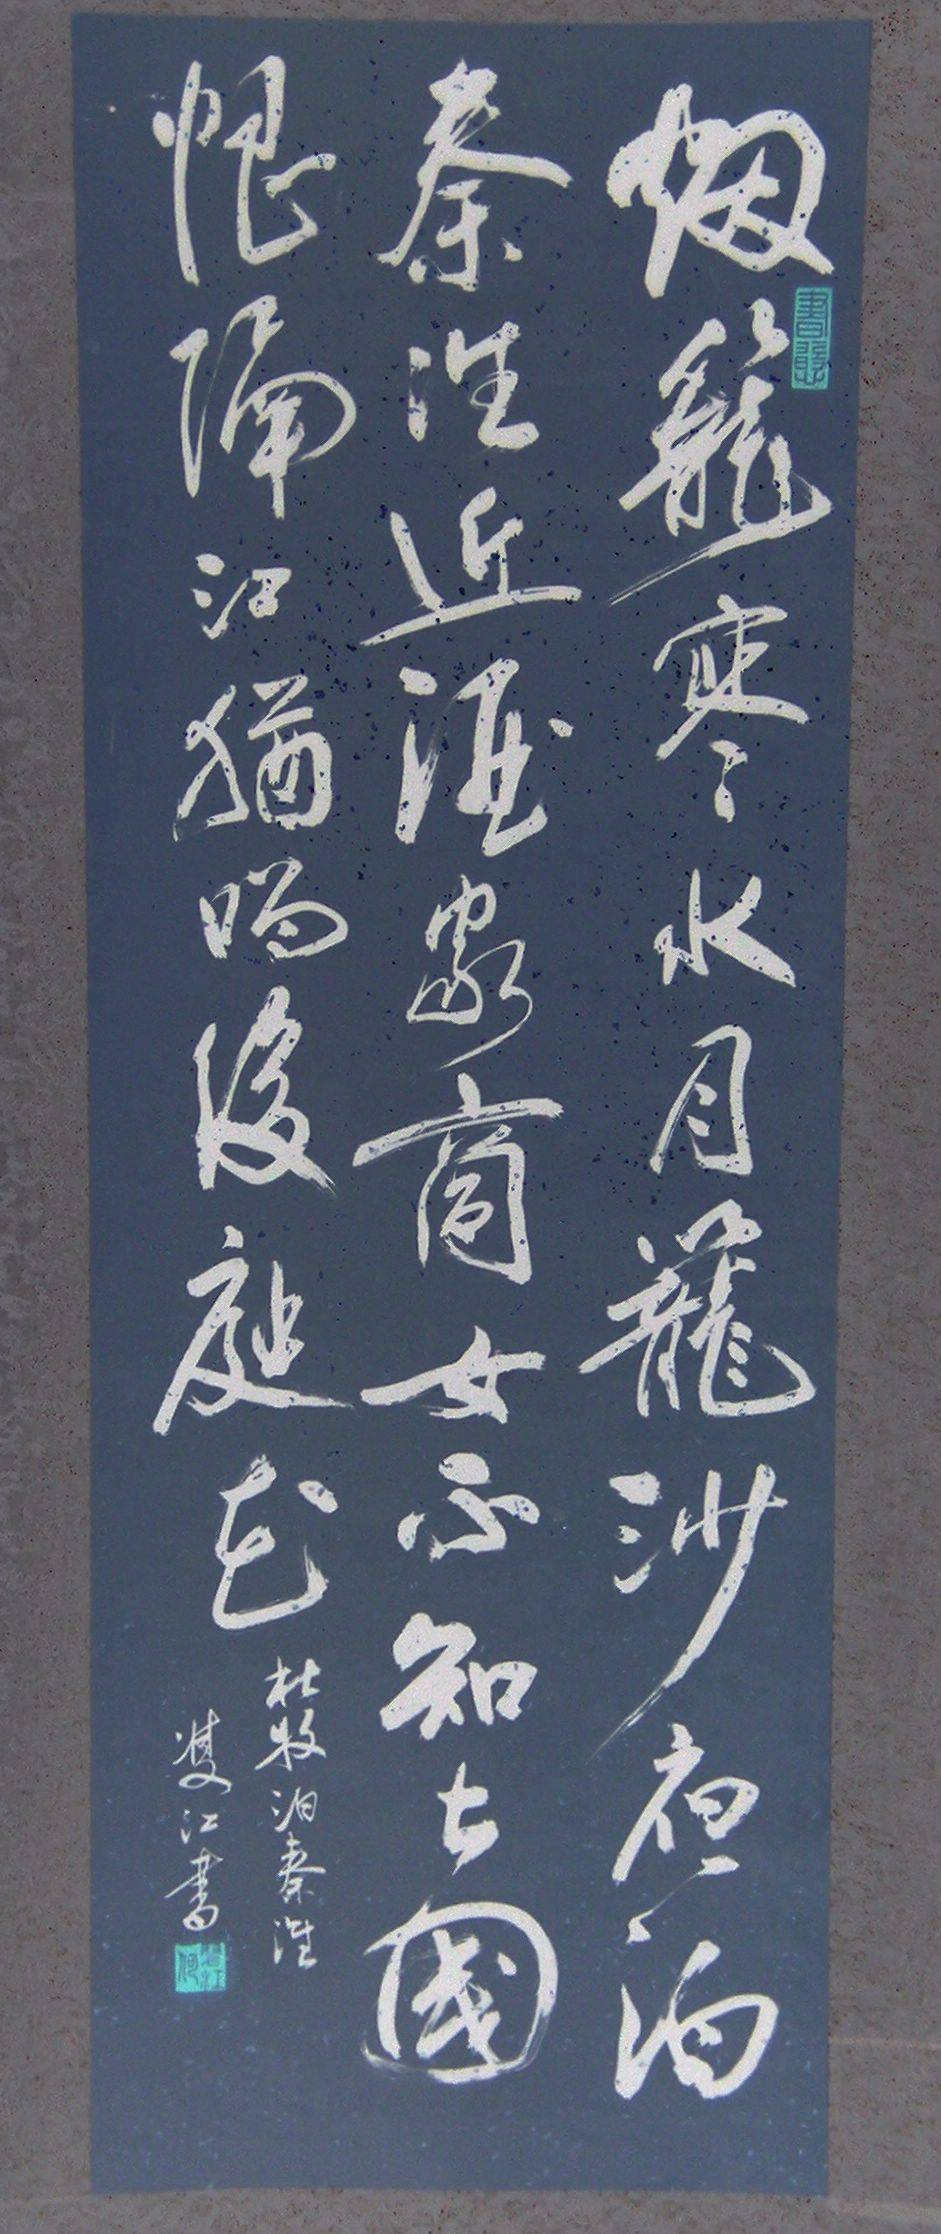 烟籠寒水月籠沙夜泊
秦淮近酒家商女不知亡國
恨隔江猶唱後庭花
杜牧泊秦淮
雙江書